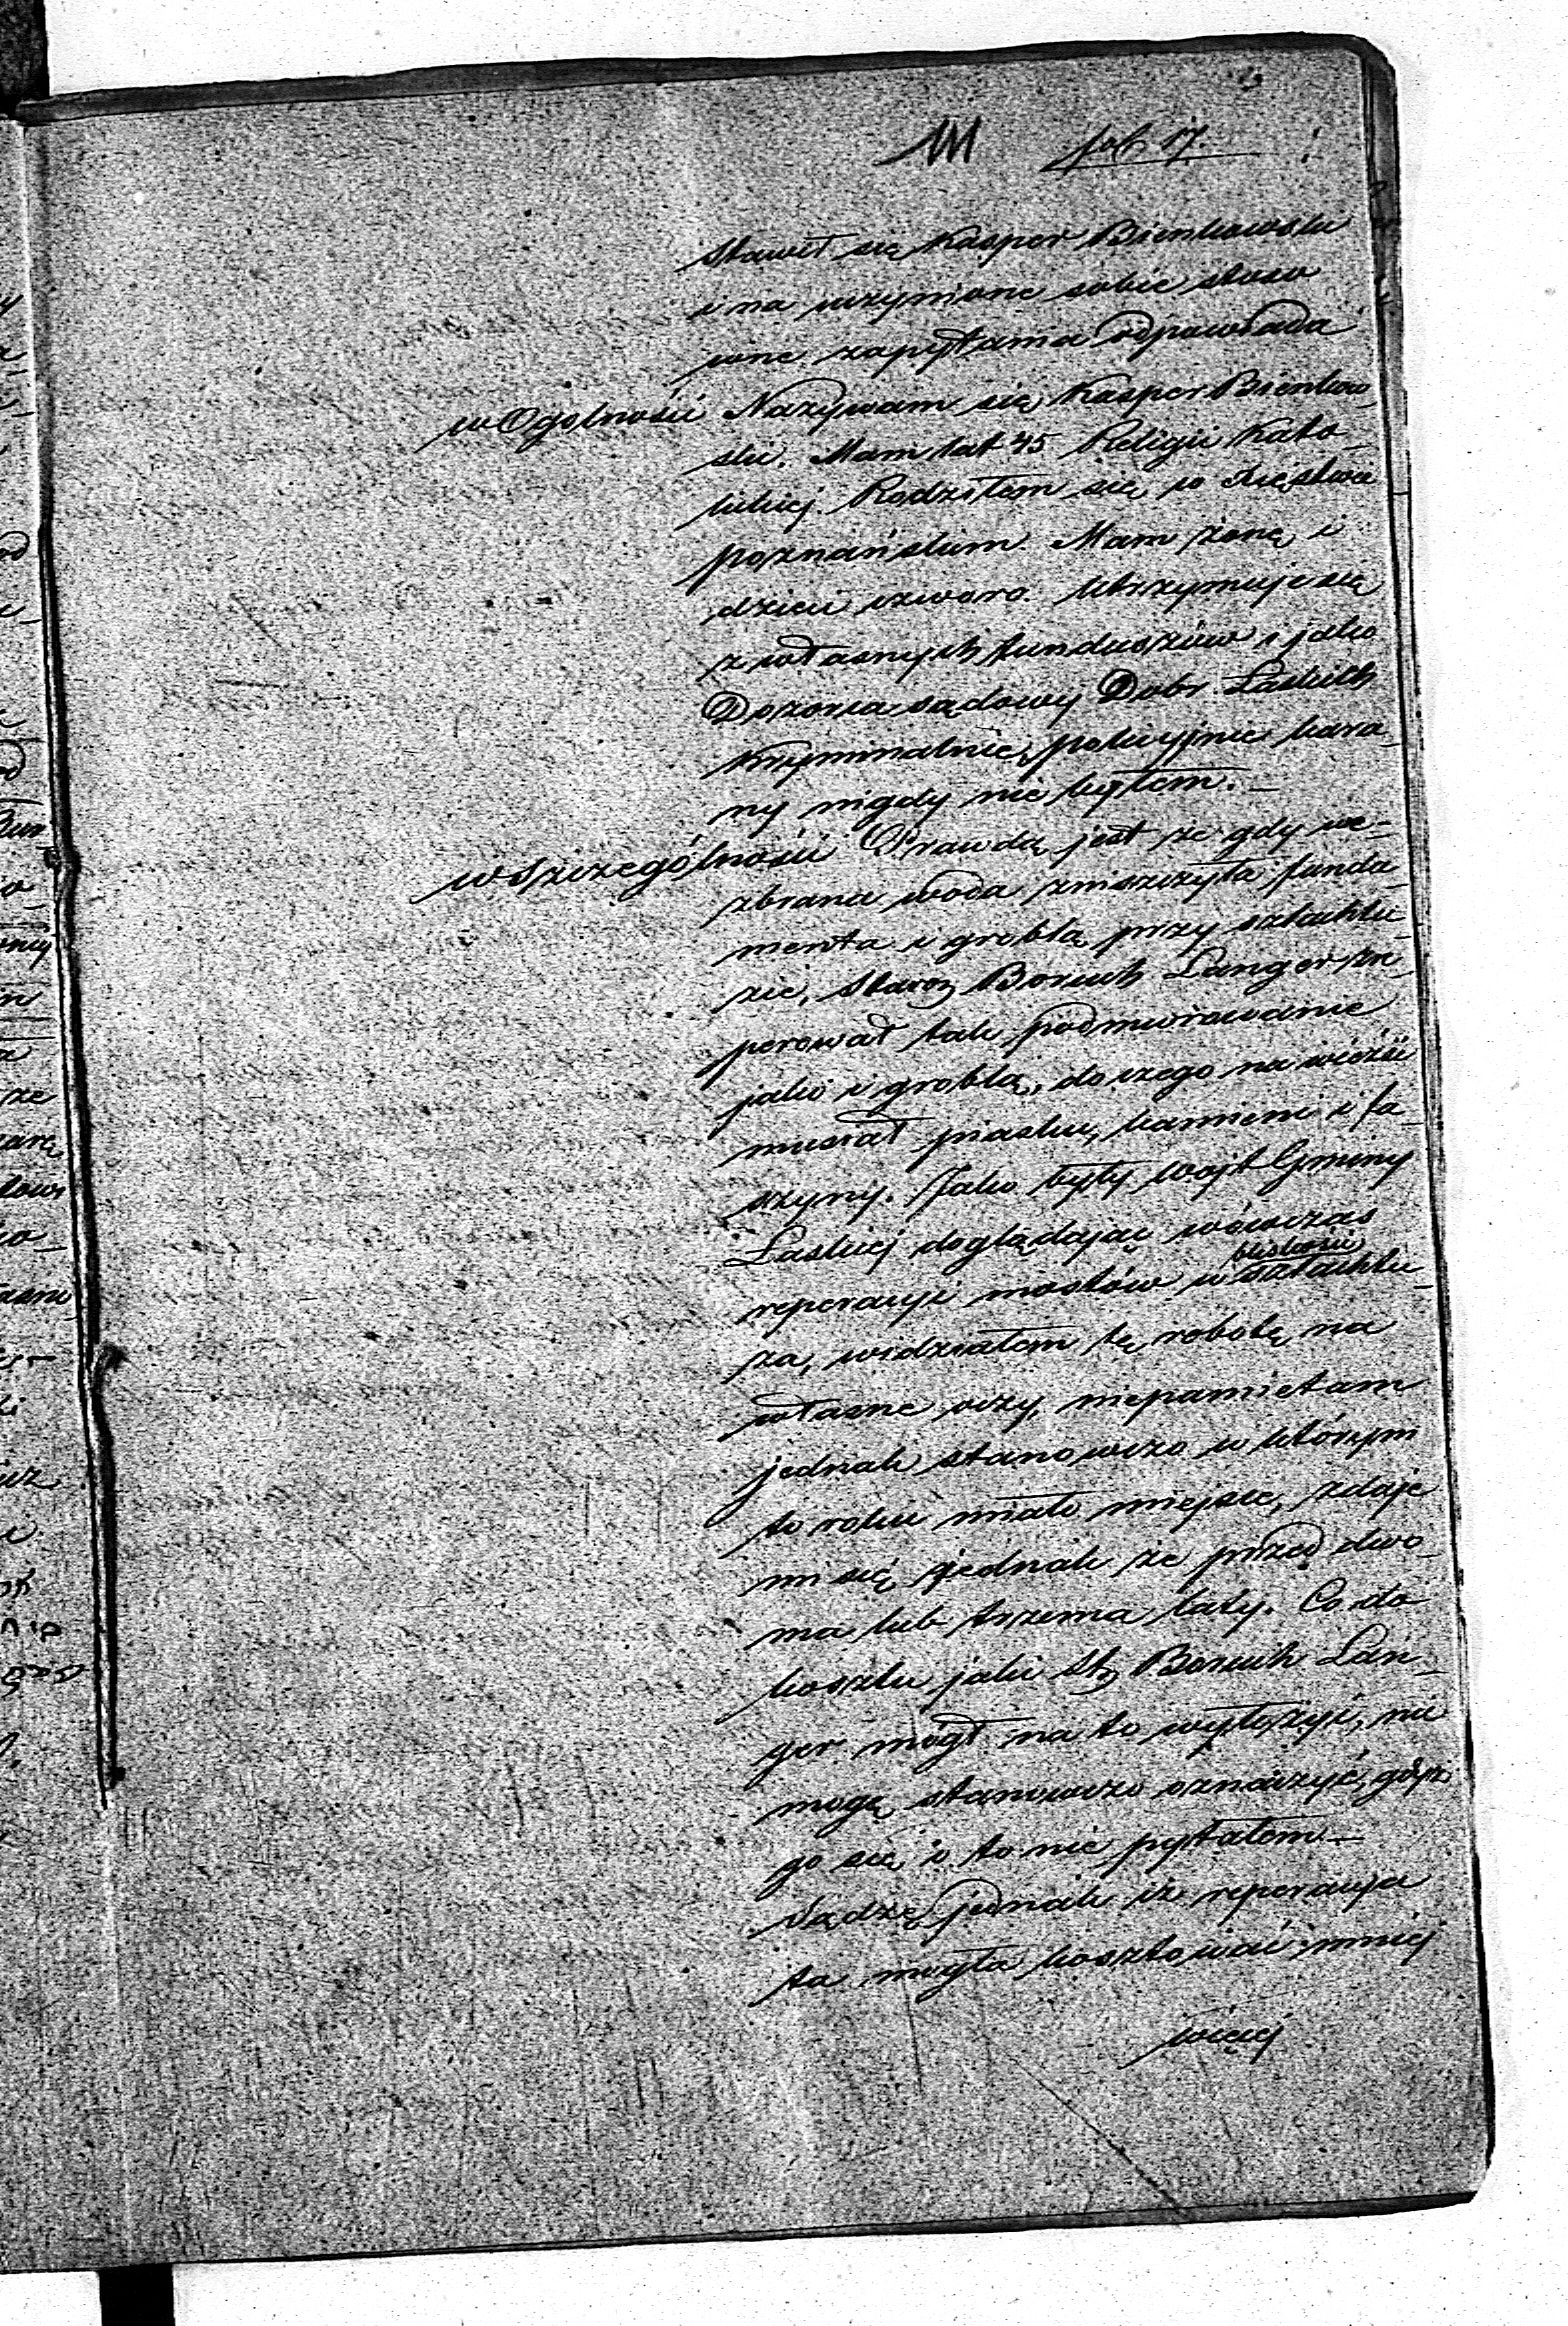 111 fol. 17.
stawił się Kasper Bienkowski
i na uczynione sobie stoso
wne zapytania odpowiada
w Ogólności Nazywam się Kasper Bienkow
ski. Mam lat 45 Religii Kato_
lickiej. Rodziłem się w Xięstwie
poznańskim. Mam żonę i
dzieci czworo. Utrzymuje się
z własnych funduszów i jako
Dozorca sądowy Dobr Laskich
Kryminalnie, policyjnie kara_
ny nigdy nie byłem._
w szczególności Prawdą jest że gdy we_
zbrana woda zniszczyła funda_
menta i groblą przy szlachtu_
zie, Staroz Boruch Langer re_
perował tak podmurowanie
jako i groblą, do czego nawieźć
musiał piasku, kamieni i fa_
szyny. Jako były wójt Gminy
Laskiej doglądając wówczas
reperacyi mostów w bliskości szlachtu_
za, widziałem tę robotę na
własne oczy, niepamietam
jednak stanowczo w którym
to roku miało miejsce, zdaje
mi się jednak że przed dwo_
ma lub trzema laty. Co do
kosztu jaki St. Boruch Lan_
ger mógł na to wyłożyć, nie
mogę stanowczo oznaczyć, gdyż
go się o to nie pytałem_
Sądzę jednak iż reperacya
ta mogła kosztować mniej
więcej